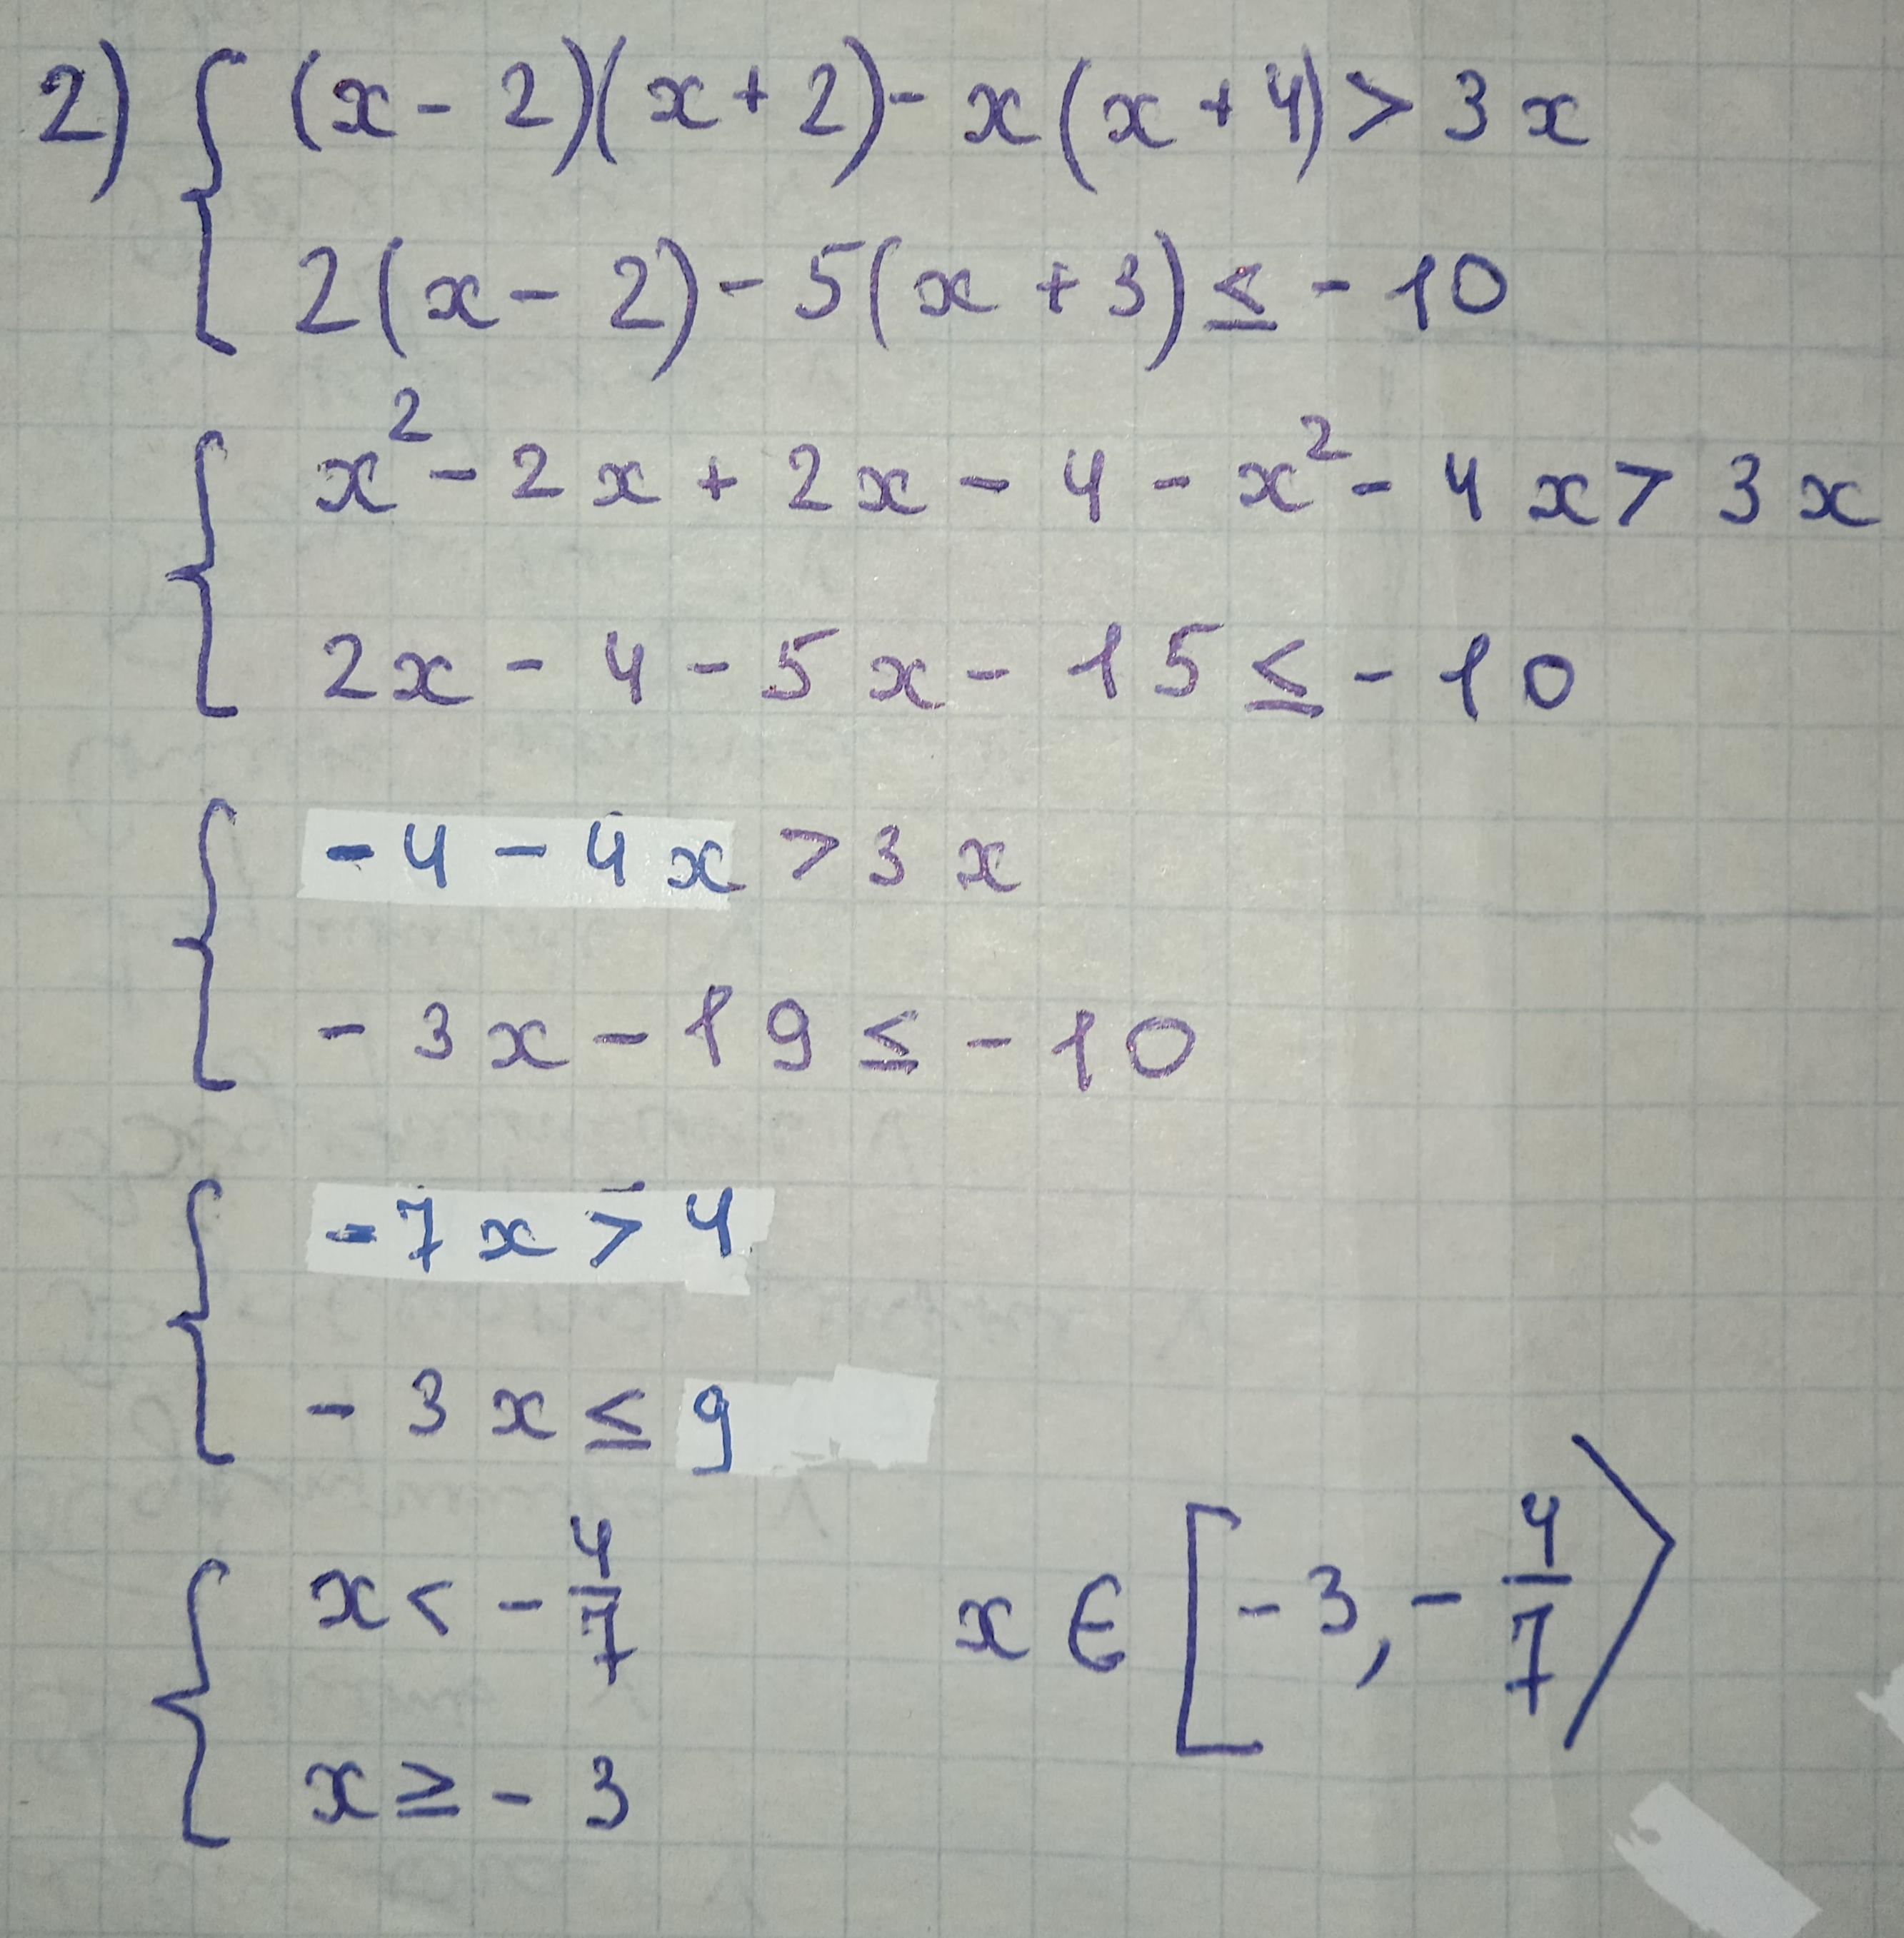 2) { (x - 2)(x + 2) - x(x + 4) > 3x
2(x - 2) - 5(x + 3) ≤ - 10
{ x² - 2x + 2x - 4 - x² - 4x > 3x
2x - 4 - 5x - 15 ≤ - 10
{ - 4 - 4x > 3x
- 3x - 19 ≤ - 10
{ - 7x > 4
- 3x ≤ 9
{ x < - 4/7
x ≥ - 3
x ∈ [- 3, - 4/7⟩